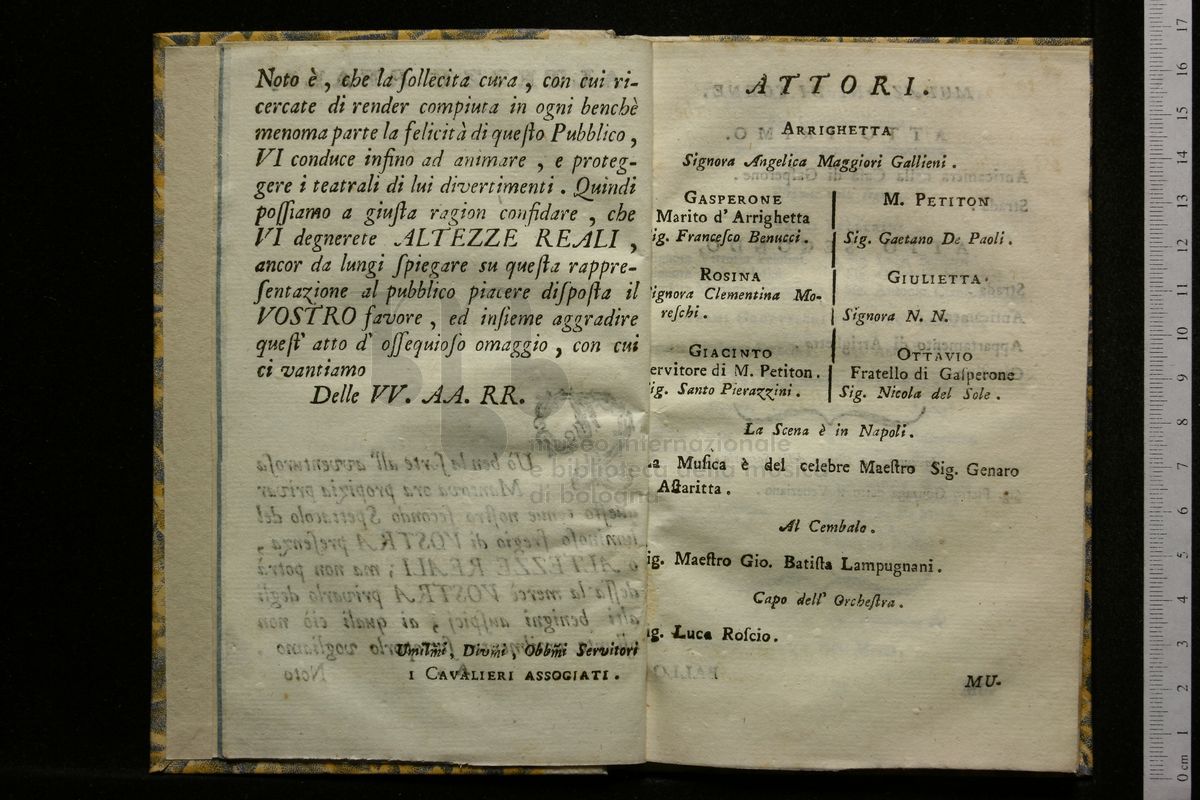 Noto è, che la ſollecita cura, con cui ri-
cercate di render compiuta in ogni benchè
menoma parte la felicità di queſto Pubblico,
VI conduce inſino ad animare, e proteg-
gere i teatrali di lui divertimenti. Quindi
poſſiamo a giuſta ragion confidare, che
VI degnerete ALTEZZE REALI,
ancor da lungi ſpiegare su queſta rappre-
ſentazione al pubblico piacere diſpoſta il
VOSTRO favore, ed inſieme aggradire
queſt' atto d' oſſequioſo omaggio, con cui
ci vantiamo
Delle VV. AA. RR.
Umilmi, Divmi, Obbmi Servitori
I CAVALIERI ASSOGIATI.
ATTORI.
ARRIGHETTA
Signora Angelica Maggiori Gallieni.
GASPERONE
Marito d' Arrighetta
ig. Franceſco Benucci.
M. PETITON
Sig. Gaetano De Paoli.
ROSINA
ignora Clementina Mo-
reſchi.
GIULIETTA.
Signora N. N.
GIACINTO
ervitore di M. Petiton.
ig. Santo Pierazzini.
OTTAVIO
Fratello di Gaſperone
Sig. Nicola del Sole.
La Scena è in Napoli.
a Muſica è del celebre Maeſtro Sig. Genaro
Aſtaritta.
Al Cembalo.
ig. Maeſtro Gio. Batiſta Lampugnani.
Capo dell' Orcheſtra.
ig. Luca Roſcio.
MU-
museo internazionale
e biblioteca della musica
di bologna
17
16
15
14
13
12
11
10
9
8
7
6
5
4
3
2
1
0 cm